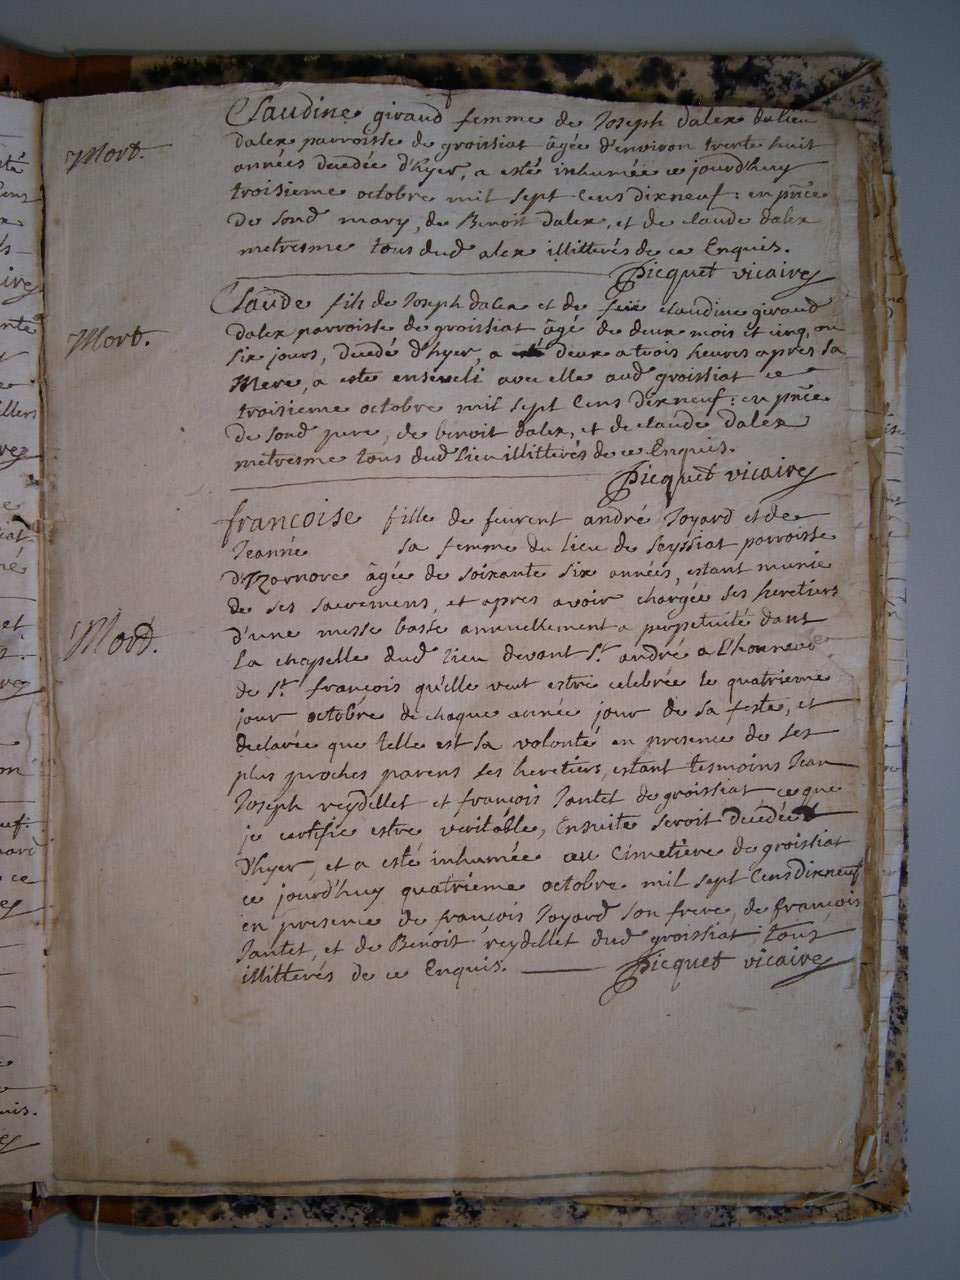 Claudine giraud femme de Joseph dalex du lieu
Mort.
dalex parroisse de groissiat âgée d'environ trente huit
années decedée d'hyer, a esté inhumée ce jourd'huy
troisieme octobre mil sept cens dixneuf: en pñce
de sond mary, de Benoit dalex, et de claude dalex
metresme tous dud alex illitterés de ce Enquis.
Picquet vicaire
Claude fils de Joseph dalex et de feüe claudine giraud
Mort.
dalex parroisse de groissiat âgé de deux mois et cinq, ou
six jours, decedé d'hyer, a deux a trois heures apres sa
Mere, a esté enseveli avec elle aud groissiat ce
troisieme octobre mil sept cens dixneuf: en pñce
de sond pere, de benoit dalex, et de claude dalex
metresme tous dud lieu illitterés de ce Enquis.
Picquet vicaire
françoise fille de feurent andré Joyard et de
Jeanne sa femme du lieu de seyssiat parroisse
d'Izernore âgée de soixante six années, estant munie
de ses sacremens, et apres avoir chargée ses heretiers
Mord.
d'une messe basse annuellement a perpetuité dans
la chapelle dud lieu devant St. andré a l'honneur
de St. françois qu'elle veut estre celebrée le quatrieme
jour octobre de chaque année jour de sa feste, et
declarée que telle est sa volonté en presence de ses
plus proches parens ses heretiers, estant tesmoins Jean
Joseph reydellet et françois Jantet de groissiat, ce que
je certifie estre veritable, Ensuite seroit decedée
d'hyer, et a esté inhumée au Cimetiere de groissiat
ce jourd'huy quatrieme octobre mil sept cens dixneuf
en presence de françois Joyard son frere, de françois
Jantet, et de Benoit reydellet dud groissiat tous
illitterés de ce Enquis.
Picquet vicaire